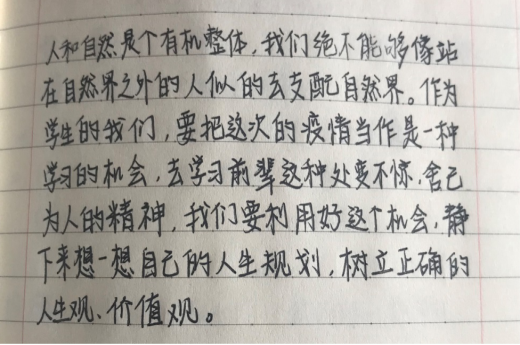 人和自然是个有机整体，我们绝不能够像站
在自然界之外的人似的去支配自然界。作为
学生的我们，要把这次的疫情当作是一种
学习的机会，去学习前辈这种处变不惊、舍己
为人的精神，我们要利用好这个机会，静
下来想一想自己的人生规划，树立正确的
人生观、价值观。